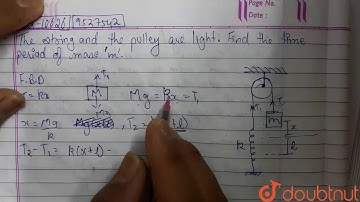 10626 | 9527542
Page No.
Date :
The string and the pulley are light. Find the time
period of mass 'm'.
F.B.D
T = kx
T1
M
Mg = kx = T1
x = Mg/k
T2 = k(x+l)
T2-T1 = k(x+l) -
T1
T
m
x
l
k
doubtnut